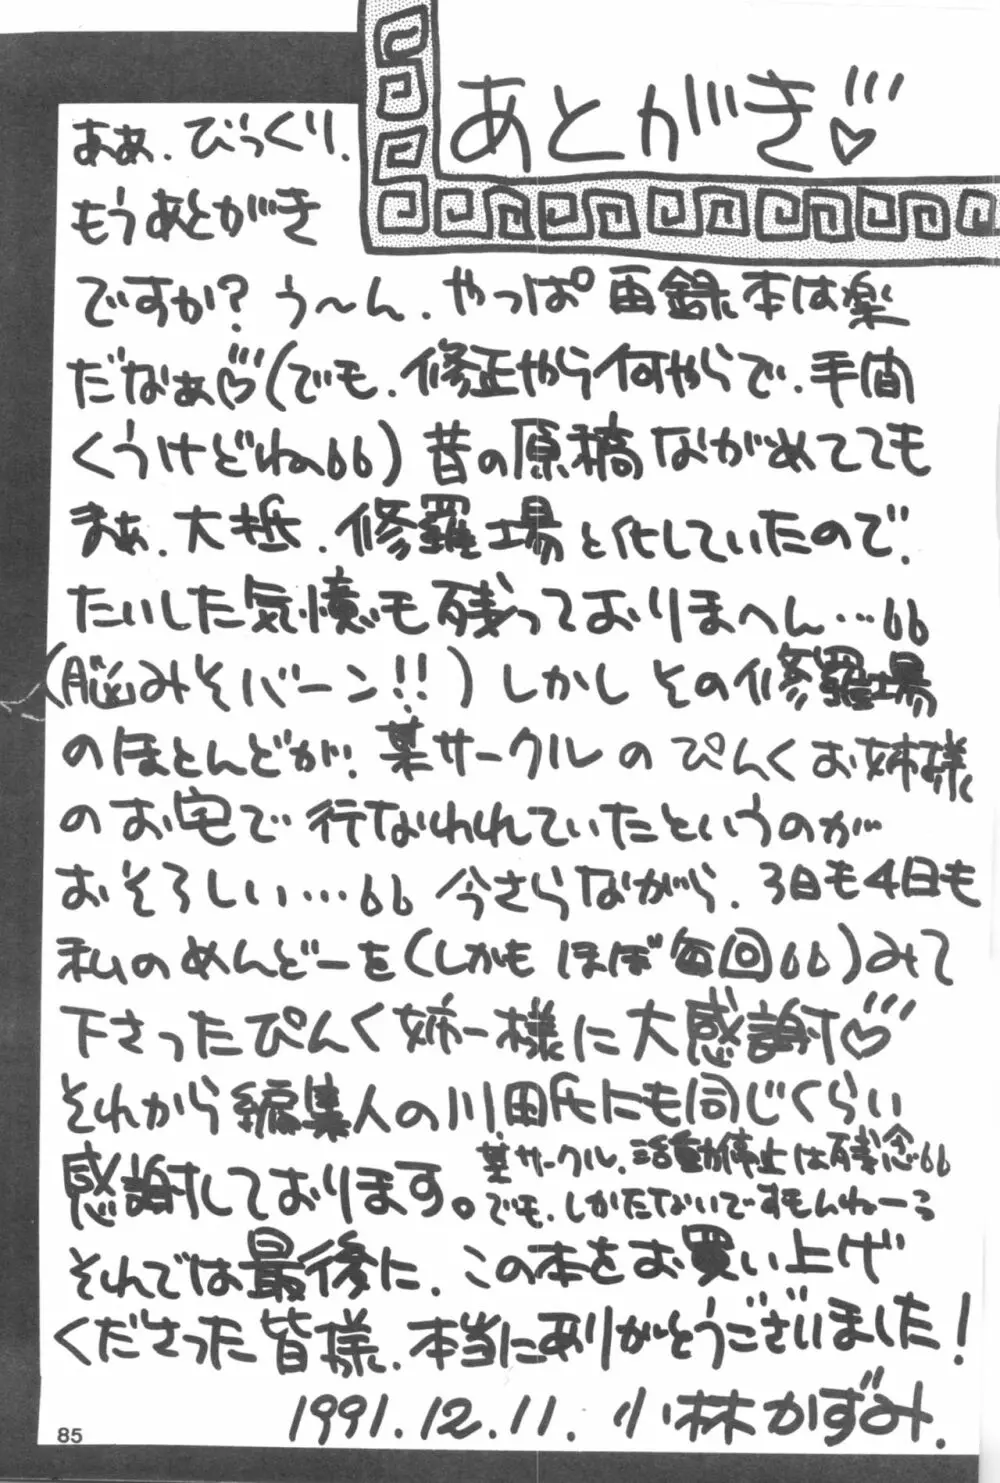 あとがき♡
ああ、びっくり、
もうあとがき
ですか?う〜ん、やっぱ再録本は楽
だなぁ♡(でも、修正やら何やらで、手間
くうけどね。)昔の原稿ながめてても
まぁ、大抵、修羅場と化していたので、
たいした気憶も残っておりまへん…
(脳みそバーン!!)しかしその修羅場
のほとんどが、某サークルのぴんくお姉様
のお宅で行なわれていたというのが
おそろしい…今さらながら、3日も4日も
私のめんどーを(しかもほぼ毎回)みて
下さったぴんく姉様に大感謝♡
それから編集人の川田氏にも同じくらい
感謝しております。
某サークル、活動停止は残念
でも、しかたないですもんねーう
それでは最後に、この本をお買い上げ
くださった皆様、本当にありがとうございました!
1991.12.11. 小林かずみ.
85